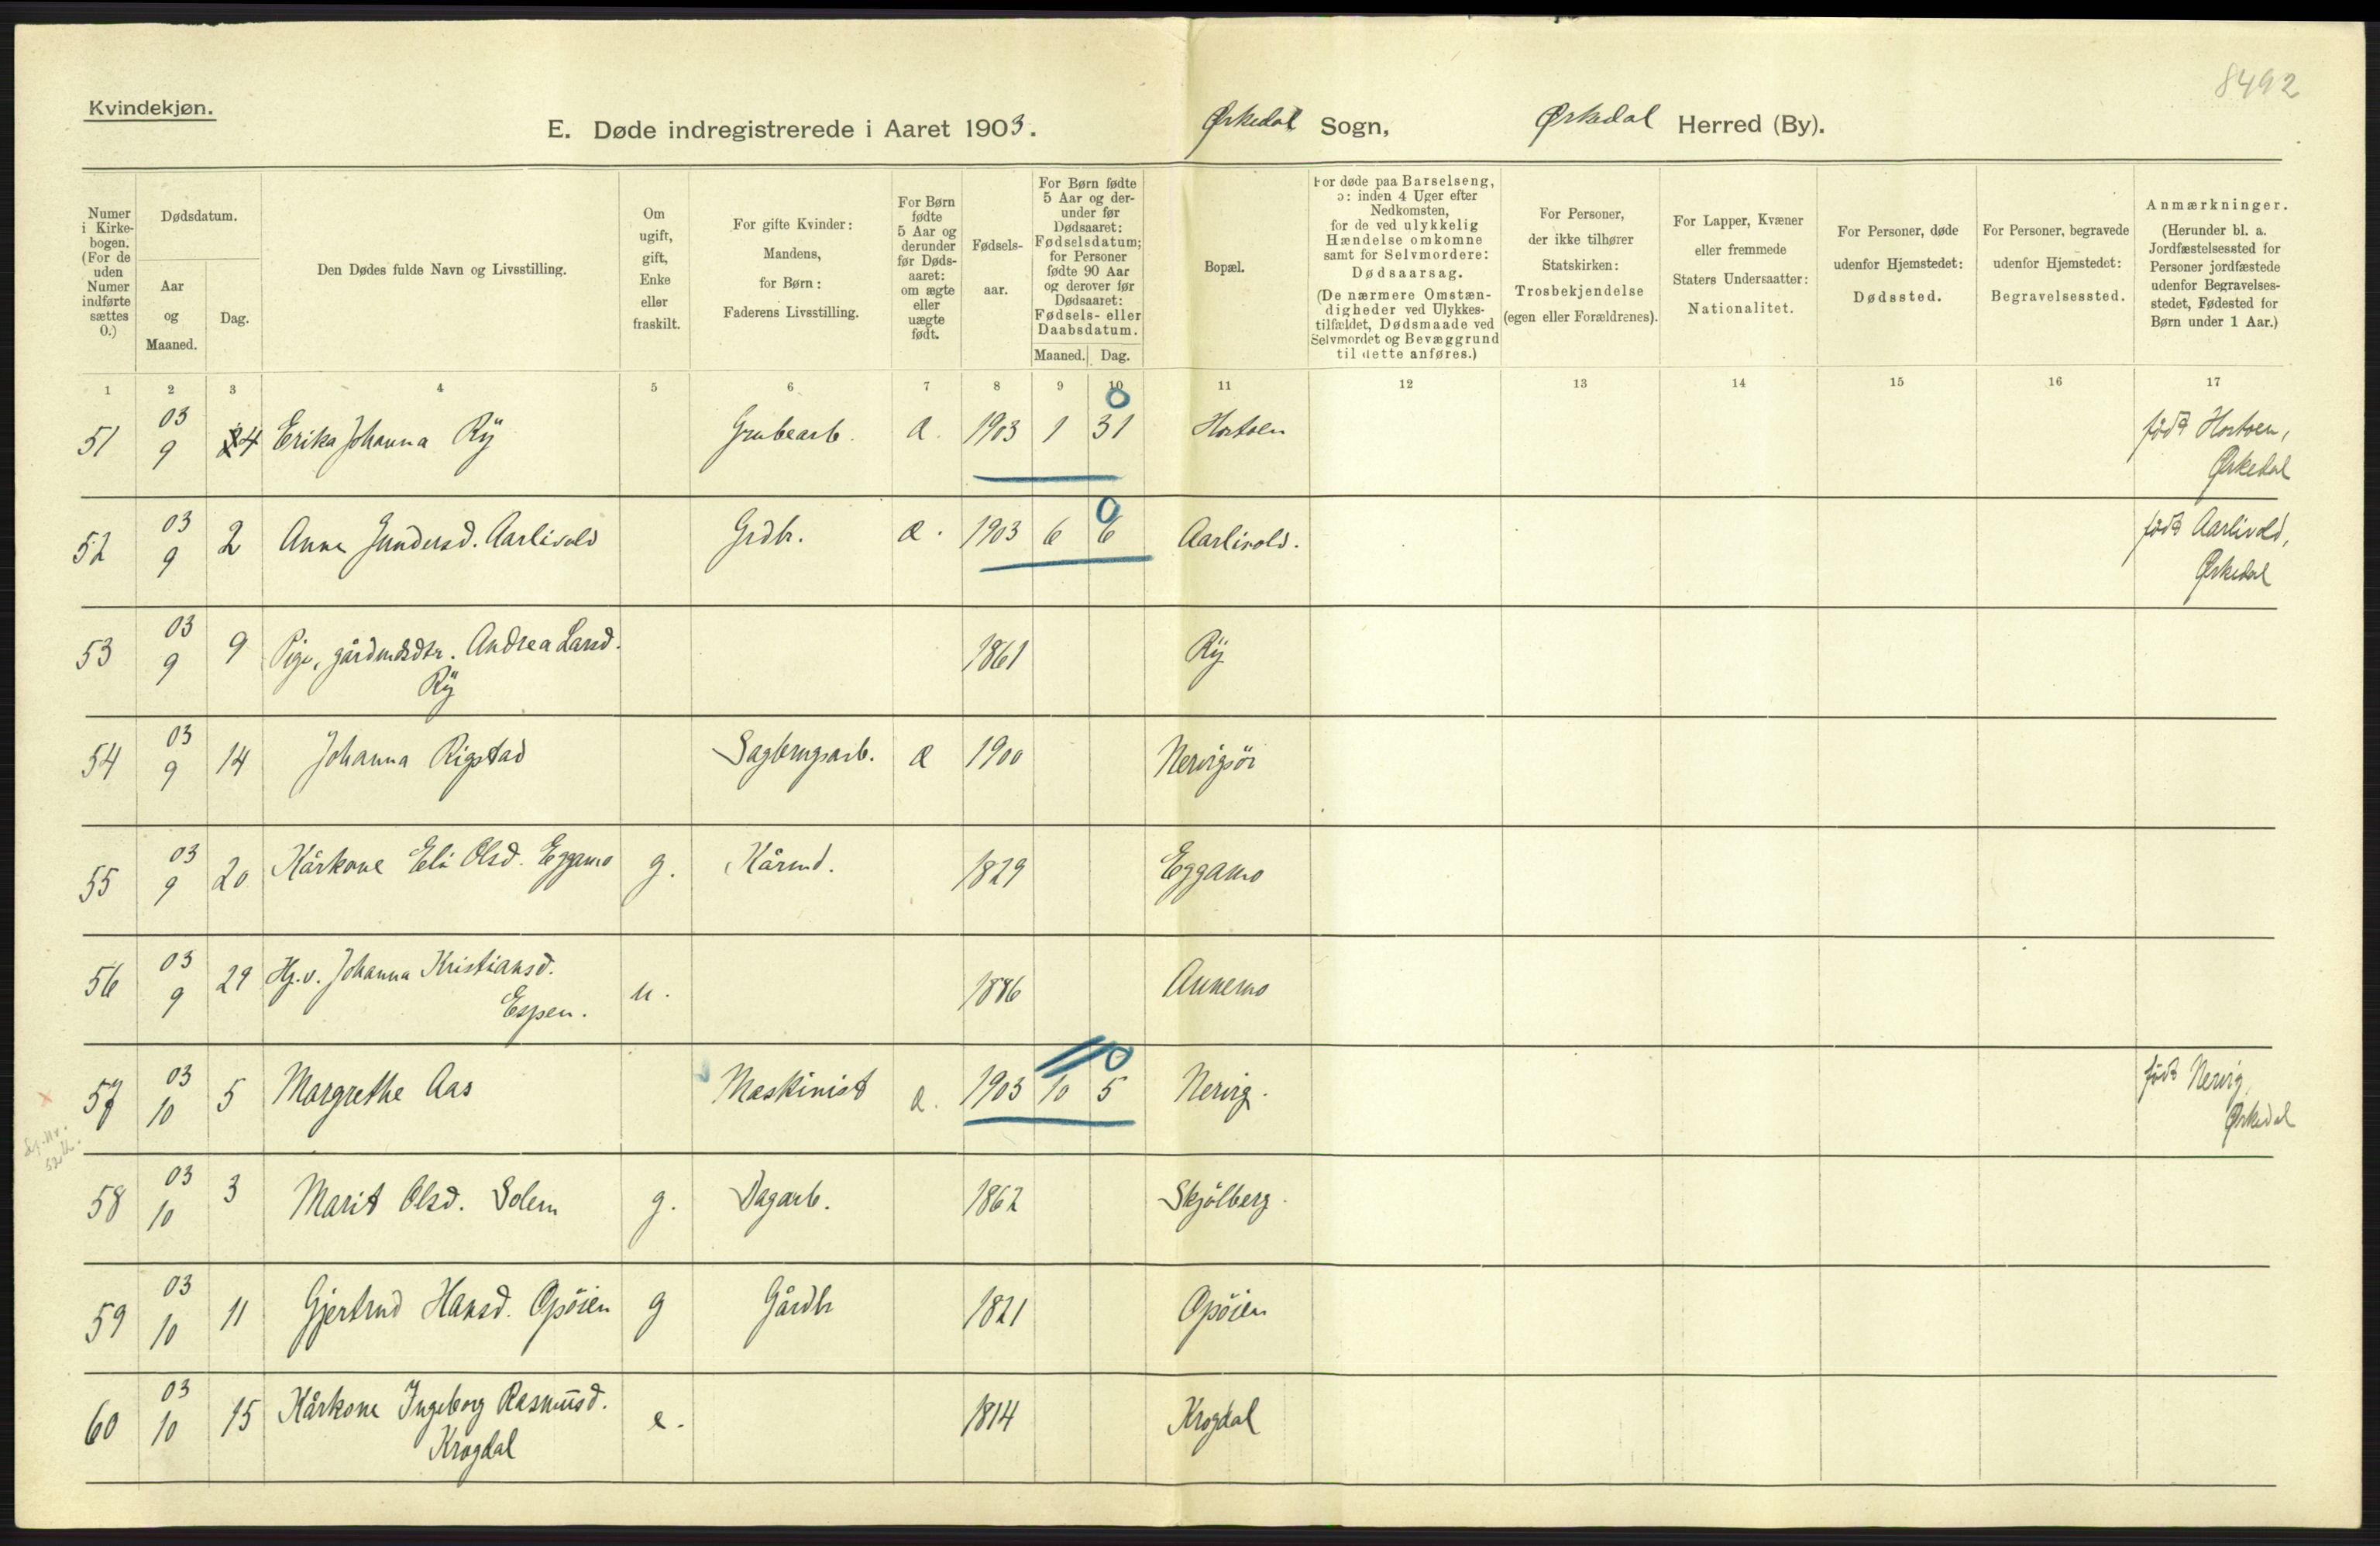 8492
Kvindekjøn.
E. Døde indregistrerede i Aaret 1903.
Ørkedal Sogn, Ørkedal Herred (By).
Numer
i Kirke-
bogen.
(For de
uden
Numer
indførte
sættes
0.)
Dødsdatum.
Aar
og
Maaned.
Dag.
Den Dødes fulde Navn og Livsstilling.
Om
ugift,
gift,
Enke
eller
fraskilt.
For gifte Kvinder:
Mandens,
for Børn:
Faderens Livsstilling.
For Børn
fødte
5 Aar og
derunder
før Døds-
aaret:
om ægte
eller
uægte
født.
Fødsels-
aar.
For Børn fødte
5 Aar og der-
under før
Dødsaaret:
Fødselsdatum;
for Personer
fødte 90 Aar
og derover før
Dødsaaret:
Fødsels- eller
Daabsdatum.
Maaned. Dag.
Bopæl.
For døde paa Barselseng,
ɔ: inden 4 Uger efter
Nedkomsten,
for de ved ulykkelig
Hændelse omkomne
samt for Selvmordere:
Dødsaarsag.
(De nærmere Omstæn-
digheder ved Ulykkes-
tilfældet, Dødsmaade ved
Selvmordet og Bevæggrund
til dette anføres.)
For Personer,
der ikke tilhører
Statskirken:
Trosbekjendelse
(egen eller Forældrenes).
For Lapper, Kvæner
eller fremmede
Staters Undersaatter:
Nationalitet.
For Personer, døde
udenfor Hjemstedet:
Dødssted.
For Personer, begravede
udenfor Hjemstedet:
Begravelsessted.
Anmærkninger.
(Herunder bl. a.
Jordfæstelsessted for
Personer jordfæstede
udenfor Begravelses-
stedet, Fødested for
Børn under 1 Aar.)
1 2 3 4 5 6 7 8 9 10 11 12 13 14 15 16 17
0
03
51 9 4 Erika Johanna Rÿ Grubearb. a. 1903 1 31 Hostoen født Hostoen,
Ørkedal
0
03
52 9 2 Anne Gundersd. Aarlivold Grdbr. a. 1903 6 6 Aarlivold. født Aarlivold,
Ørkedal
03
53 9 9 Pige, gårdmdsdtr. Andrea Larsd. 1861 Rÿ
Rÿ
03
54 9 14 Johanna Rigstad Sagbrugsarb. a 1900 Nervigsör
03
55 9 20 Kårkone Eli Olsd. Eggamo g. Kårmd. 1829 Eggamo
03
56 9 29 Hj.v. Johanna Kristiansd. u. 1886 Annemo
Espen.
0
03
57 10 5 Margrethe Aas Maskinist a. 1903 10 5 Nervig. født Nervig,
Ørkedal
03
58 10 3 Marit Olsd. Solem g. Dagarb. 1862 Skjölberg.
03
59 10 11 Gjertrud Hansd. Opöien g Gårdbr 1821 Opöien
03
60 10 15 Kårkone Ingeborg Rasmusd. e. 1814 Krogdal
Krogdal